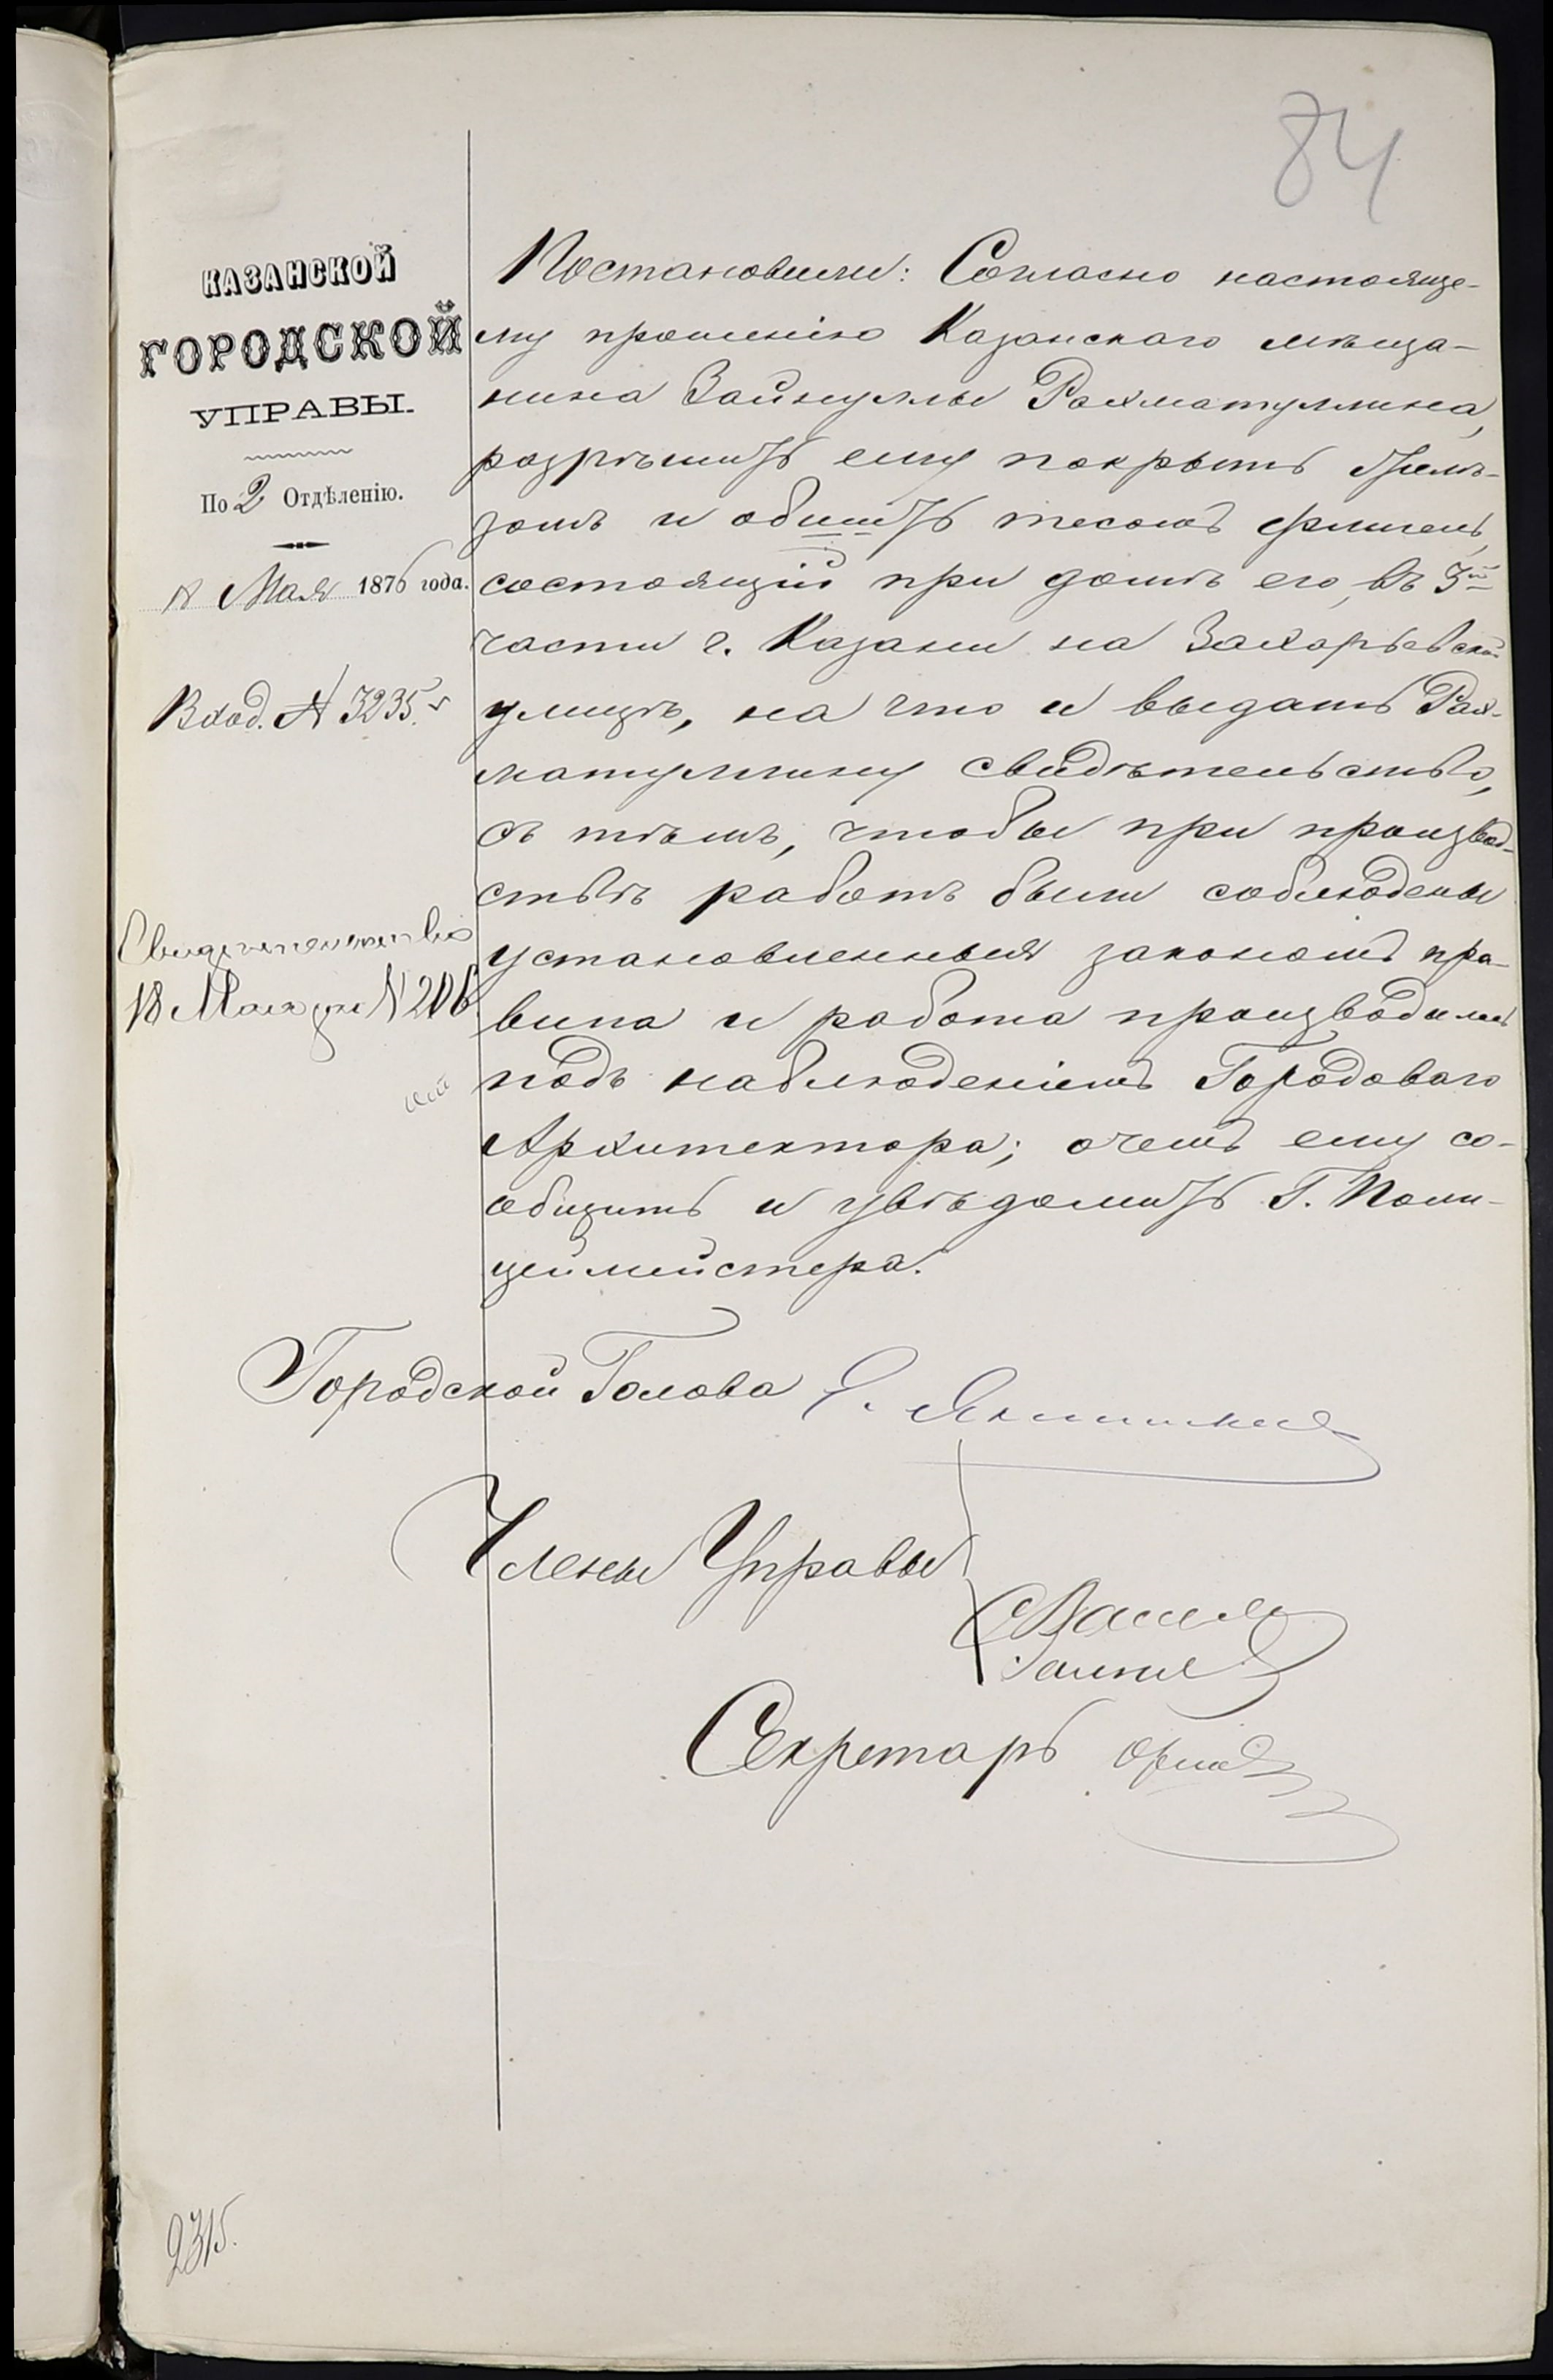 84
КАЗАНСКОЙ
ГОРОДСКОЙ
УПРАВЫ.
По 2 Отдѣленію.
Мая 1876 года.
Вход. № 3235.
Свидѣтельство
18 Мая за № 206
Постановили: Согласно настояще-
му прошенію Казанскаго мѣща-
нина Зайнуллы Рахматуллина,
разрѣшить ему покрыть желѣ-
зомъ и обшить тесомъ флигель,
состоящій при домѣ его, въ 3й
части г. Казани на Захарьевской
улицѣ, на что и выдать Рах-
матуллину свидѣтельство,
съ тѣмъ, чтобы при производ-
ствѣ работъ были соблюдены
установленныя закономъ пра-
вила и работа производилась
подъ наблюденіемъ Городоваго
Архитектора; о чемъ ему со-
общить и увѣдомить Г. Поли-
цеймейстера.
Городской Голова Е. Янишевскій
Члены Управы
Секретарь
2315.